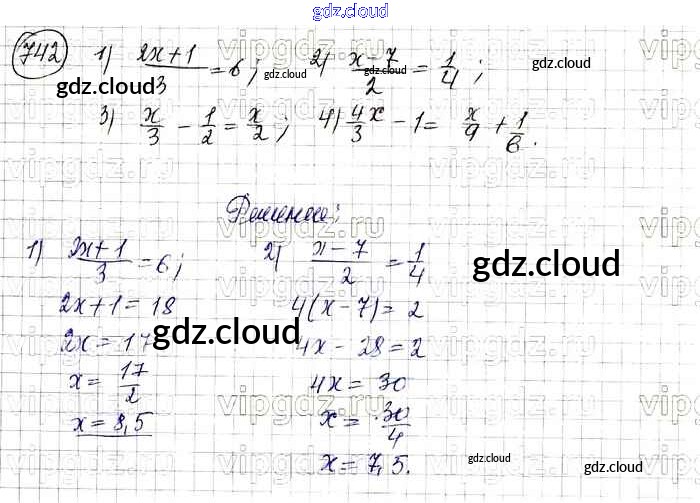 gdz.cloud
742 1) (2x+1)/3 = 6; 2) (x-7)/2 = 1/4;
3) x/3 - 1/2 = x/2; 4) 4/3 x - 1 = x/9 + 1/6.
Решение:
1) (2x+1)/3 = 6; 2) (x-7)/2 = 1/4
2x+1 = 18 4(x-7) = 2
2x = 17 4x - 28 = 2
x = 17/2 4x = 30
x = 8,5 x = 30/4
x = 7,5.
gdz.cloud
gdz.cloud
gdz.cloud
gdz.cloud
gdz.cloud
gdz.cloud
gdz.cloud
gdz.cloud
vipgdz.ru